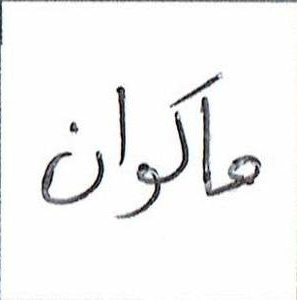 ماكوان